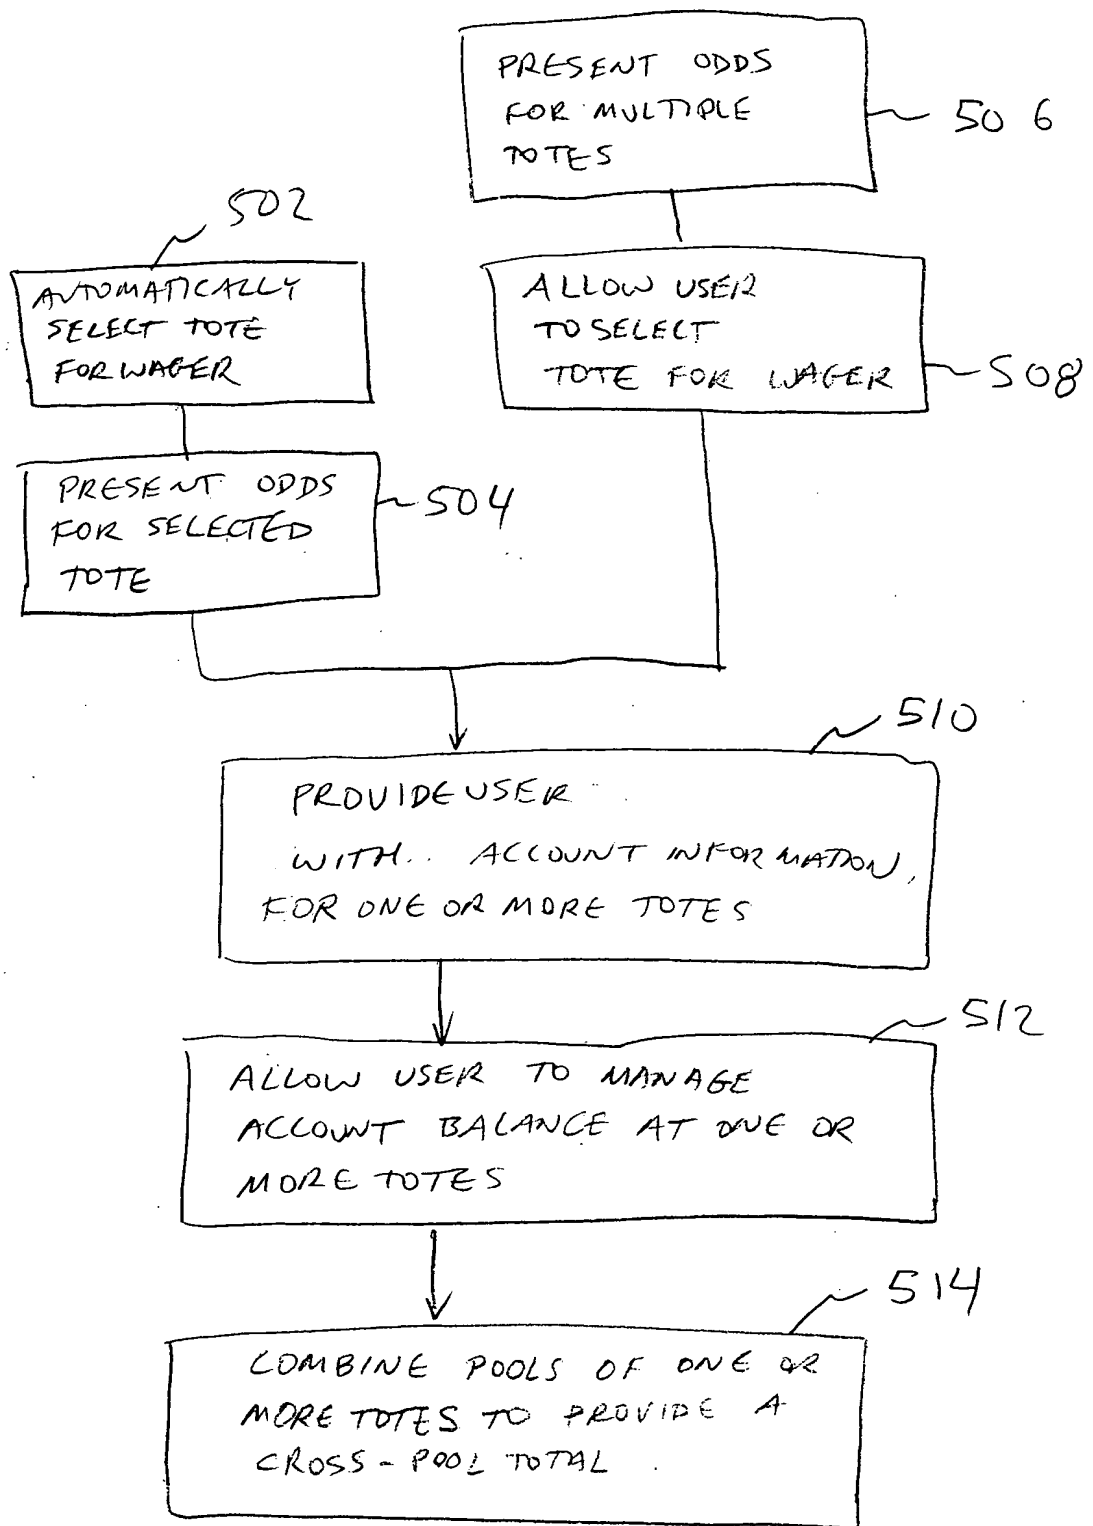 PRESENT ODDS
FOR MULTIPLE
TOTES
506
502
AUTOMATICALLY
SELECT TOTE
FOR WAGER
ALLOW USER
TO SELECT
TOTE FOR WAGER
508
PRESENT ODDS
FOR SELECTED
TOTE
504
510
PROVIDE USER
WITH ACCOUNT INFORMATION,
FOR ONE OR MORE TOTES
512
ALLOW USER TO MANAGE
ACCOUNT BALANCE AT ONE OR
MORE TOTES
514
COMBINE POOLS OF ONE OR
MORE TOTES TO PROVIDE A
CROSS-POOL TOTAL